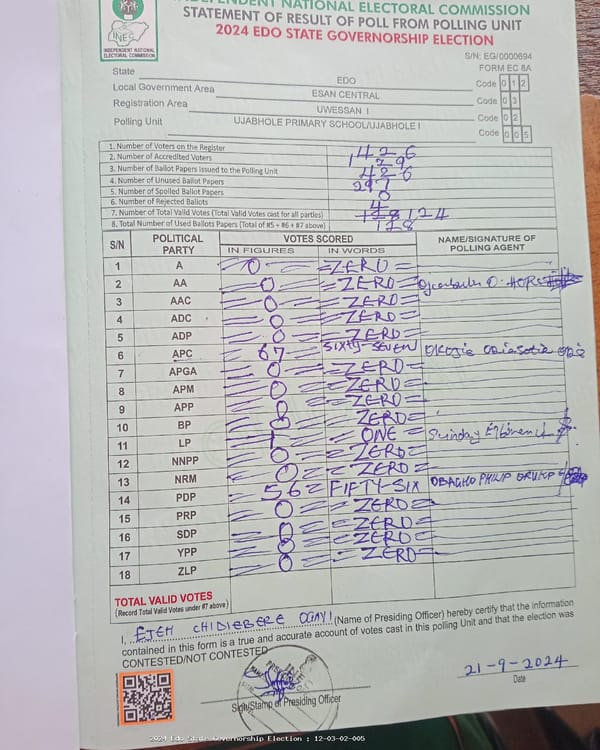 INDEPENDENT NATIONAL ELECTORAL COMMISSION
STATEMENT OF RESULT OF POLL FROM POLLING UNIT
2024 EDO STATE GOVERNORSHIP ELECTION
INEC
INDEPENDENT NATIONAL ELECTORAL COMMISSION
S/N: EG/0000694
FORM EC 8A
State EDO Code 0 1 2
Local Government Area ESAN CENTRAL Code 0 3
Registration Area UWESSAN I Code 0 2
Polling Unit UJABHOLE PRIMARY SCHOOL/UJABHOLE I Code 0 0 5
1. Number of Voters on the Register 426
2. Number of Accredited Voters 129
3. Number of Ballot Papers Issued to the Polling Unit 426
4. Number of Unused Ballot Papers 297
5. Number of Spoiled Ballot Papers 0
6. Number of Rejected Ballots 4
7. Number of Total Valid Votes (Total Valid Votes cast for all parties) 128 124
8. Total Number of Used Ballots Papers (Total of #5 + #6 + #7 above) 128
S/N POLITICAL PARTY VOTES SCORED NAME/SIGNATURE OF POLLING AGENT
IN FIGURES IN WORDS
1 A 0 =ZERO=
2 AA 0 =ZERO=
3 AAC 0 =ZERO=
4 ADC 0 =ZERO=
5 ADP 0 =ZERO=
6 APC 67 SIXTY-SEVEN
7 APGA 0 =ZERO=
8 APM 0 =ZERO=
9 APP 0 =ZERO=
10 BP 0 ZERO=
11 LP 1 = ONE = Sunday
12 NNPP 0 =ZERO=
13 NRM 0 = ZERO=
14 PDP 56 = FIFTY-SIX OBAGHO PHILIP
15 PRP 0 =ZERO=
16 SDP 0 =ZERO=
17 YPP 0 =ZERO=
18 ZLP 0 =ZERO=
TOTAL VALID VOTES
(Record Total Valid Votes under #7 above)
I, EJEH CHIDIEBERE OGAYI (Name of Presiding Officer) hereby certify that the information
contained in this form is a true and accurate account of votes cast in this polling Unit and that the election was
CONTESTED/NOT CONTESTED
21-9-2024
Sign/Stamp of Presiding Officer
Date
2024 Edo State Governorship Election : 12-03-02-005